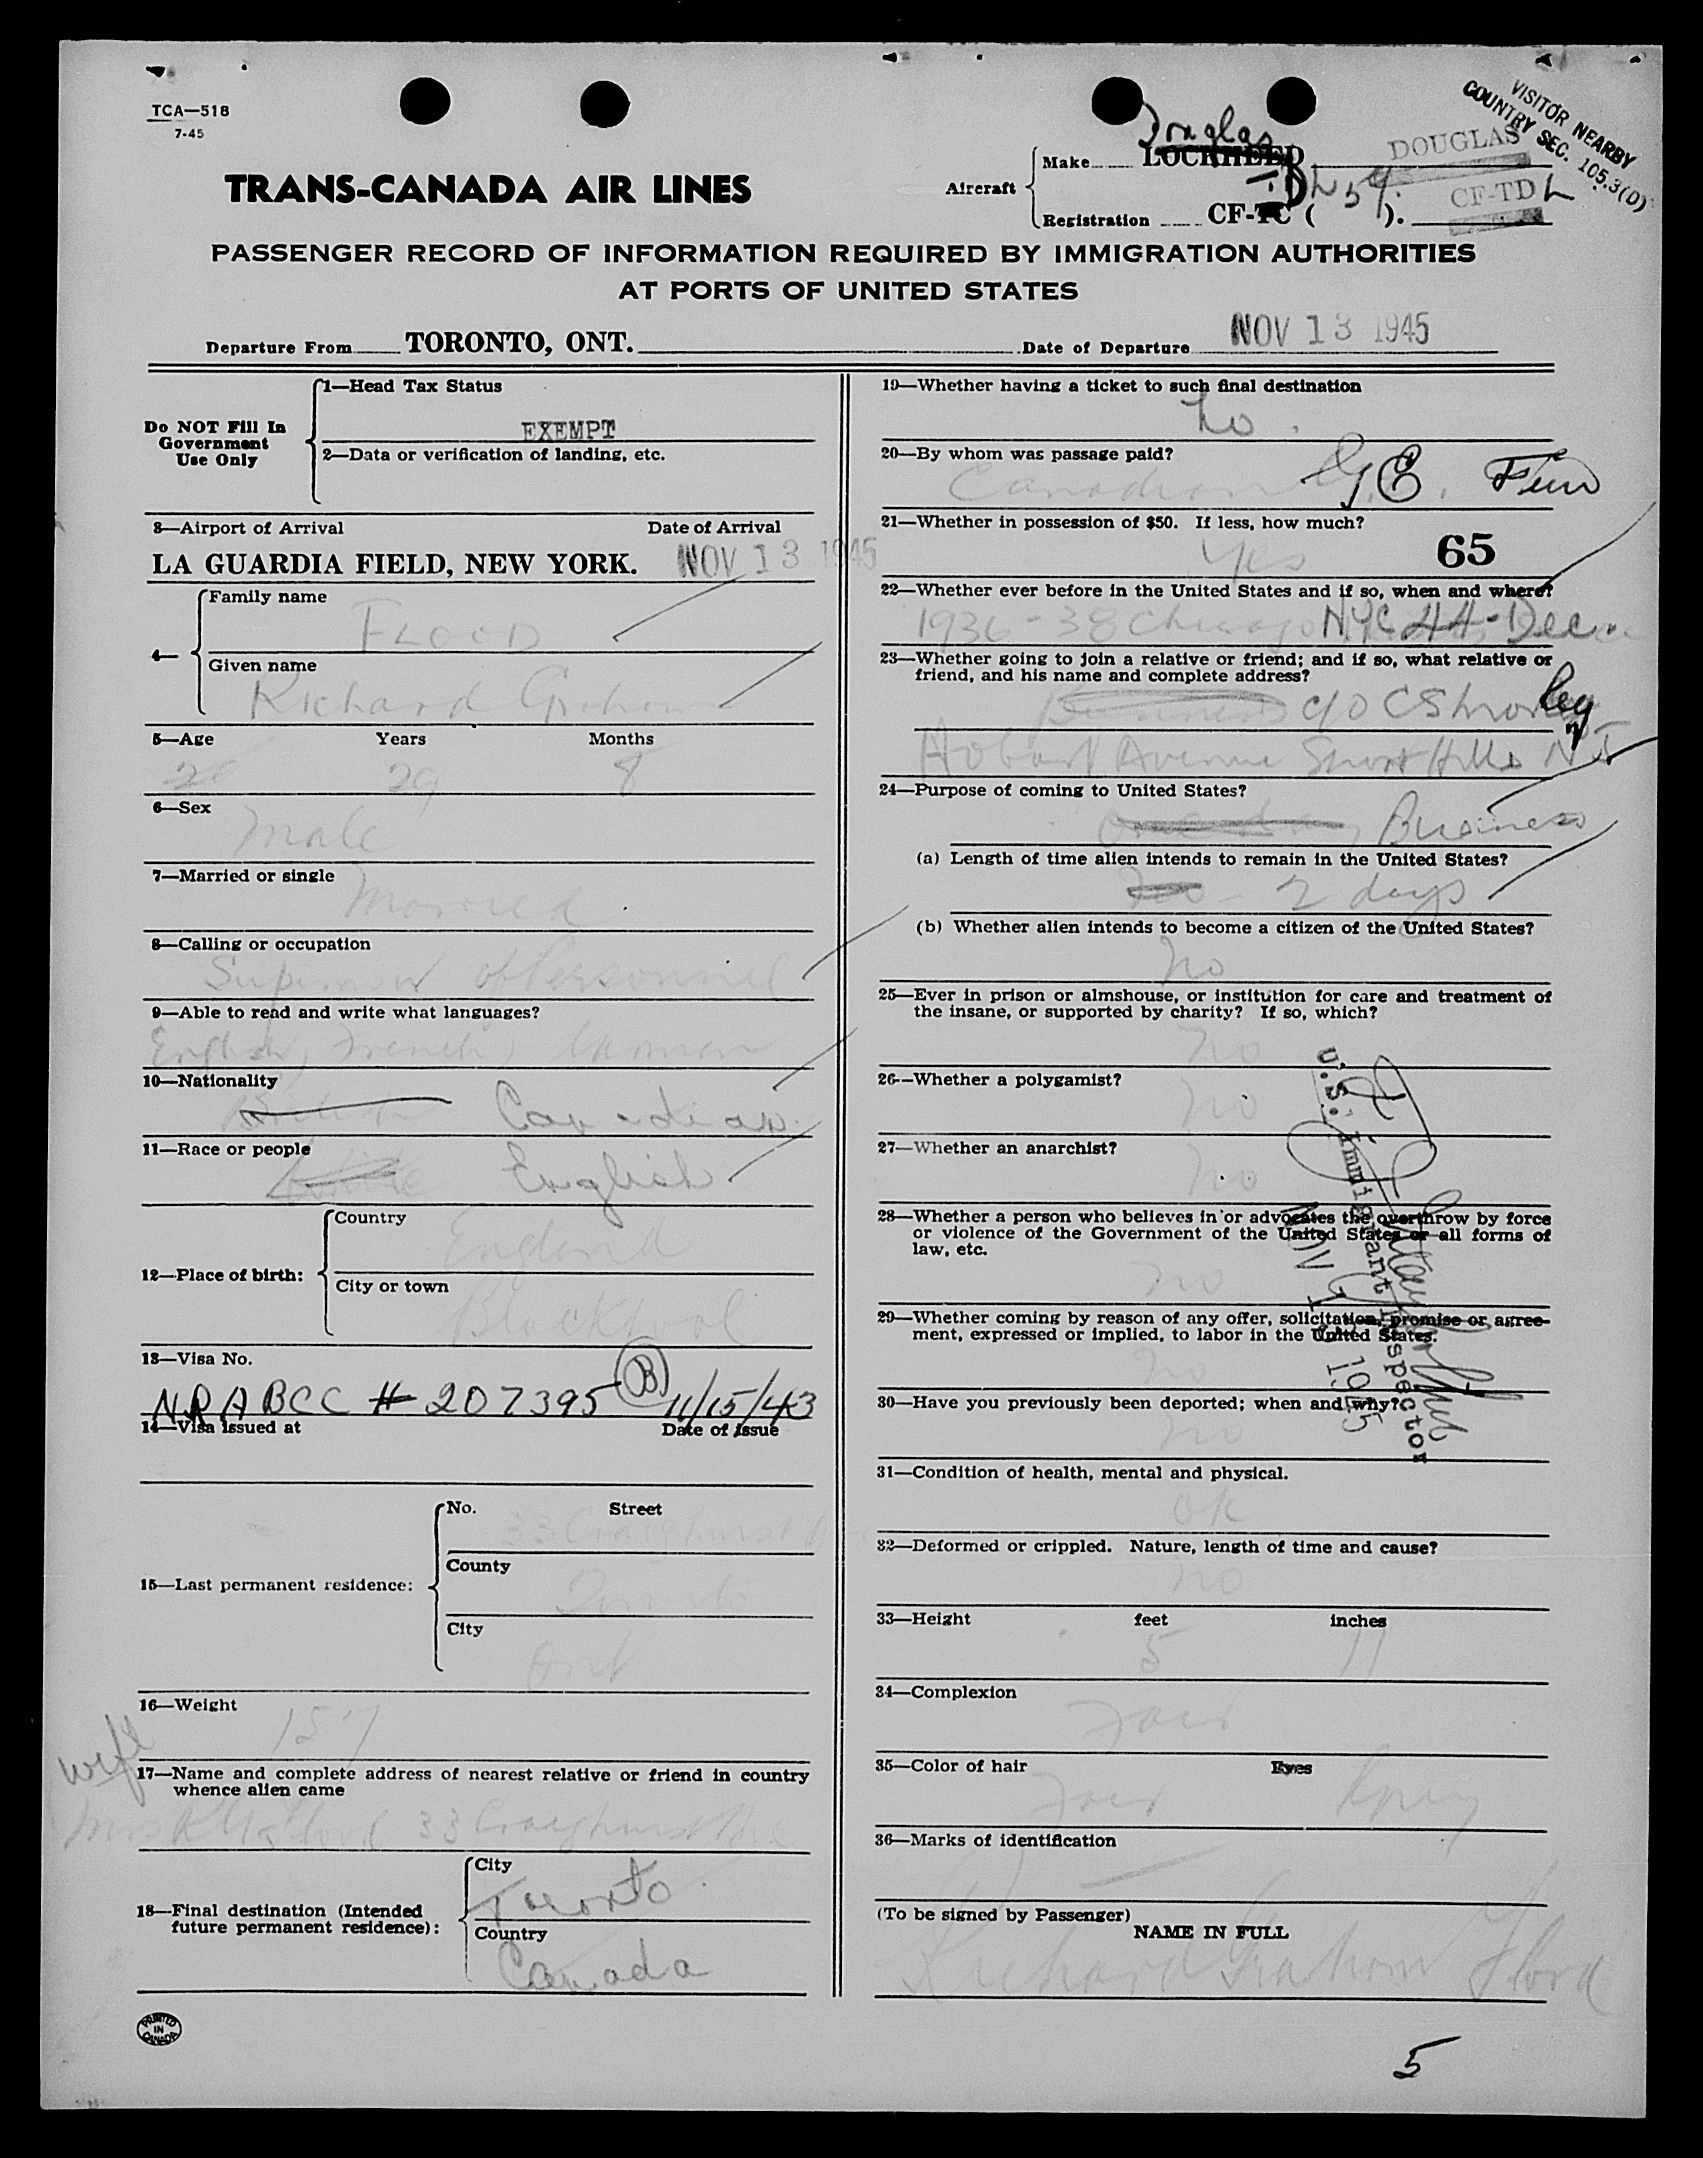 TCA—518
7-45
VISITOR NEARBY
COUNTRY SEC. 105.3(D)
TRANS-CANADA AIR LINES
Aircraft
Make
Douglas
LOCKHEED
DOUGLAS
Registration
CF-TC ( ).
CF-TD L
PASSENGER RECORD OF INFORMATION REQUIRED BY IMMIGRATION AUTHORITIES
AT PORTS OF UNITED STATES
Departure From TORONTO, ONT. Date of Departure NOV 13 1945
Do NOT Fill In
Government
Use Only
1—Head Tax Status
EXEMPT
2—Data or verification of landing, etc.
3—Airport of Arrival Date of Arrival
LA GUARDIA FIELD, NEW YORK. NOV 13 1945
4—
Family name
FLOOD
Given name
Richard Graham
5—Age Years Months
29 8
6—Sex
Male
7—Married or single
Married
8—Calling or occupation
Supervisor of Personnel
9—Able to read and write what languages?
English, French, German
10—Nationality
British Canadian
11—Race or people
English
12—Place of birth:
Country
England
City or town
Blackpool
13—Visa No.
NRABCC # 207395 (B) 11/15/43
14—Visa issued at Date of issue
15—Last permanent residence:
No. Street
33 Craighurst Ave
County
Toronto
City
Ont
16—Weight
157
wife
17—Name and complete address of nearest relative or friend in country
whence alien came
Mrs R G Flood 33 Craighurst Ave
18—Final destination (Intended
future permanent residence):
City
Toronto
Country
Canada
PRINTED
IN
CANADA
19—Whether having a ticket to such final destination
No.
20—By whom was passage paid?
Canadian G.E. Firm
21—Whether in possession of $50. If less, how much?
Yes 65
22—Whether ever before in the United States and if so, when and where?
1936-38 Chicago NYC 44-Dec.
23—Whether going to join a relative or friend; and if so, what relative or
friend, and his name and complete address?
c/o C
Hobart Avenue Short Hills NJ
24—Purpose of coming to United States?
one day Business
(a) Length of time alien intends to remain in the United States?
2 days
(b) Whether alien intends to become a citizen of the United States?
No
25—Ever in prison or almshouse, or institution for care and treatment of
the insane, or supported by charity? If so, which?
no
26—Whether a polygamist?
no
27—Whether an anarchist?
no
28—Whether a person who believes in or advocates the overthrow by force
or violence of the Government of the United States or all forms of
law, etc.
no
29—Whether coming by reason of any offer, solicitation, promise or agree-
ment, expressed or implied, to labor in the United States.
no
30—Have you previously been deported; when and why?
no
U.S. Immigrant Inspector
NOV 1945
31—Condition of health, mental and physical.
OK
32—Deformed or crippled. Nature, length of time and cause?
no
33—Height feet inches
5 11
34—Complexion
Fair
35—Color of hair Eyes
Fair Grey
36—Marks of identification
—
(To be signed by Passenger)
NAME IN FULL
Richard Graham Flood
5